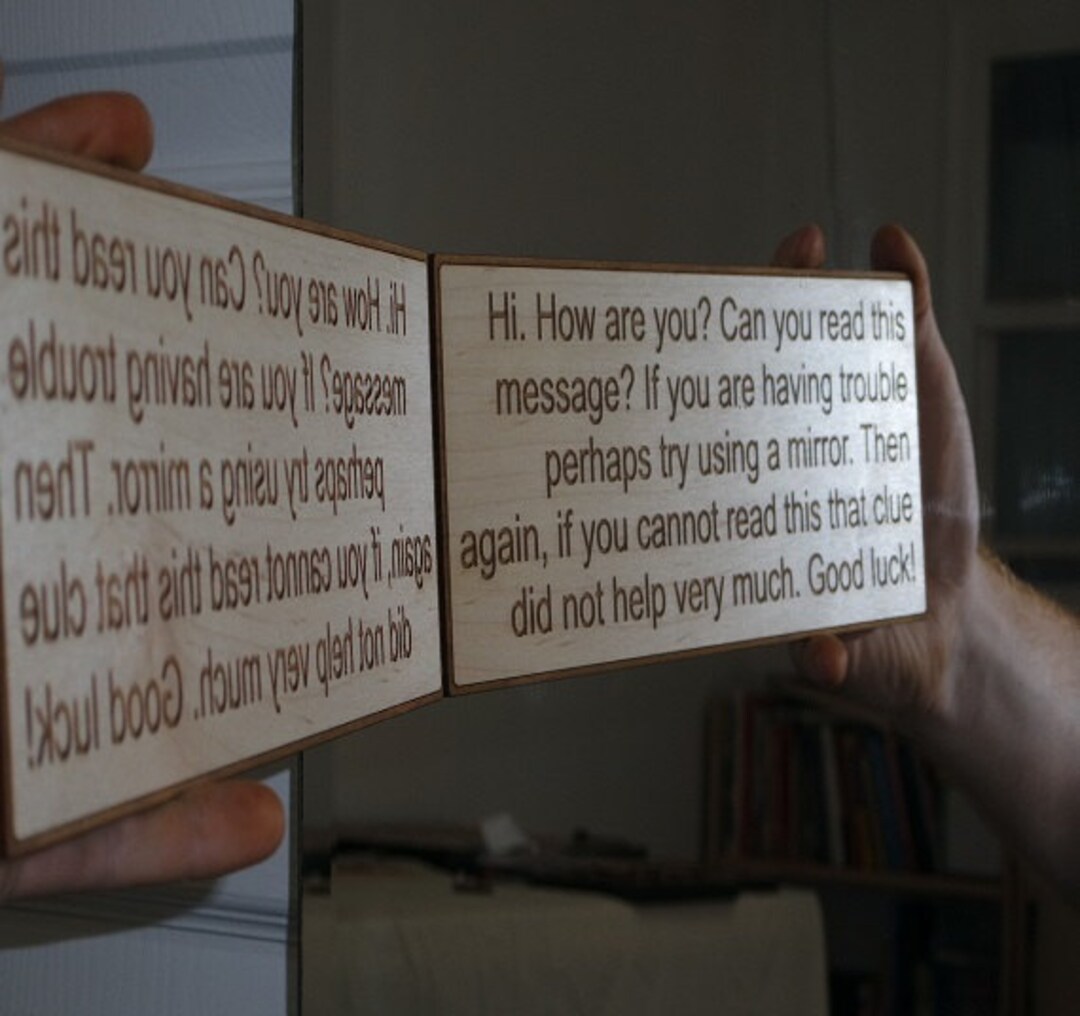 Hi. How are you? Can you read this
message? If you are having trouble
perhaps try using a mirror. Then
again, if you cannot read this that clue
did not help very much. Good luck!
Hi. How are you? Can you read this
message? If you are having trouble
perhaps try using a mirror. Then
again, if you cannot read this that clue
did not help very much. Good luck!